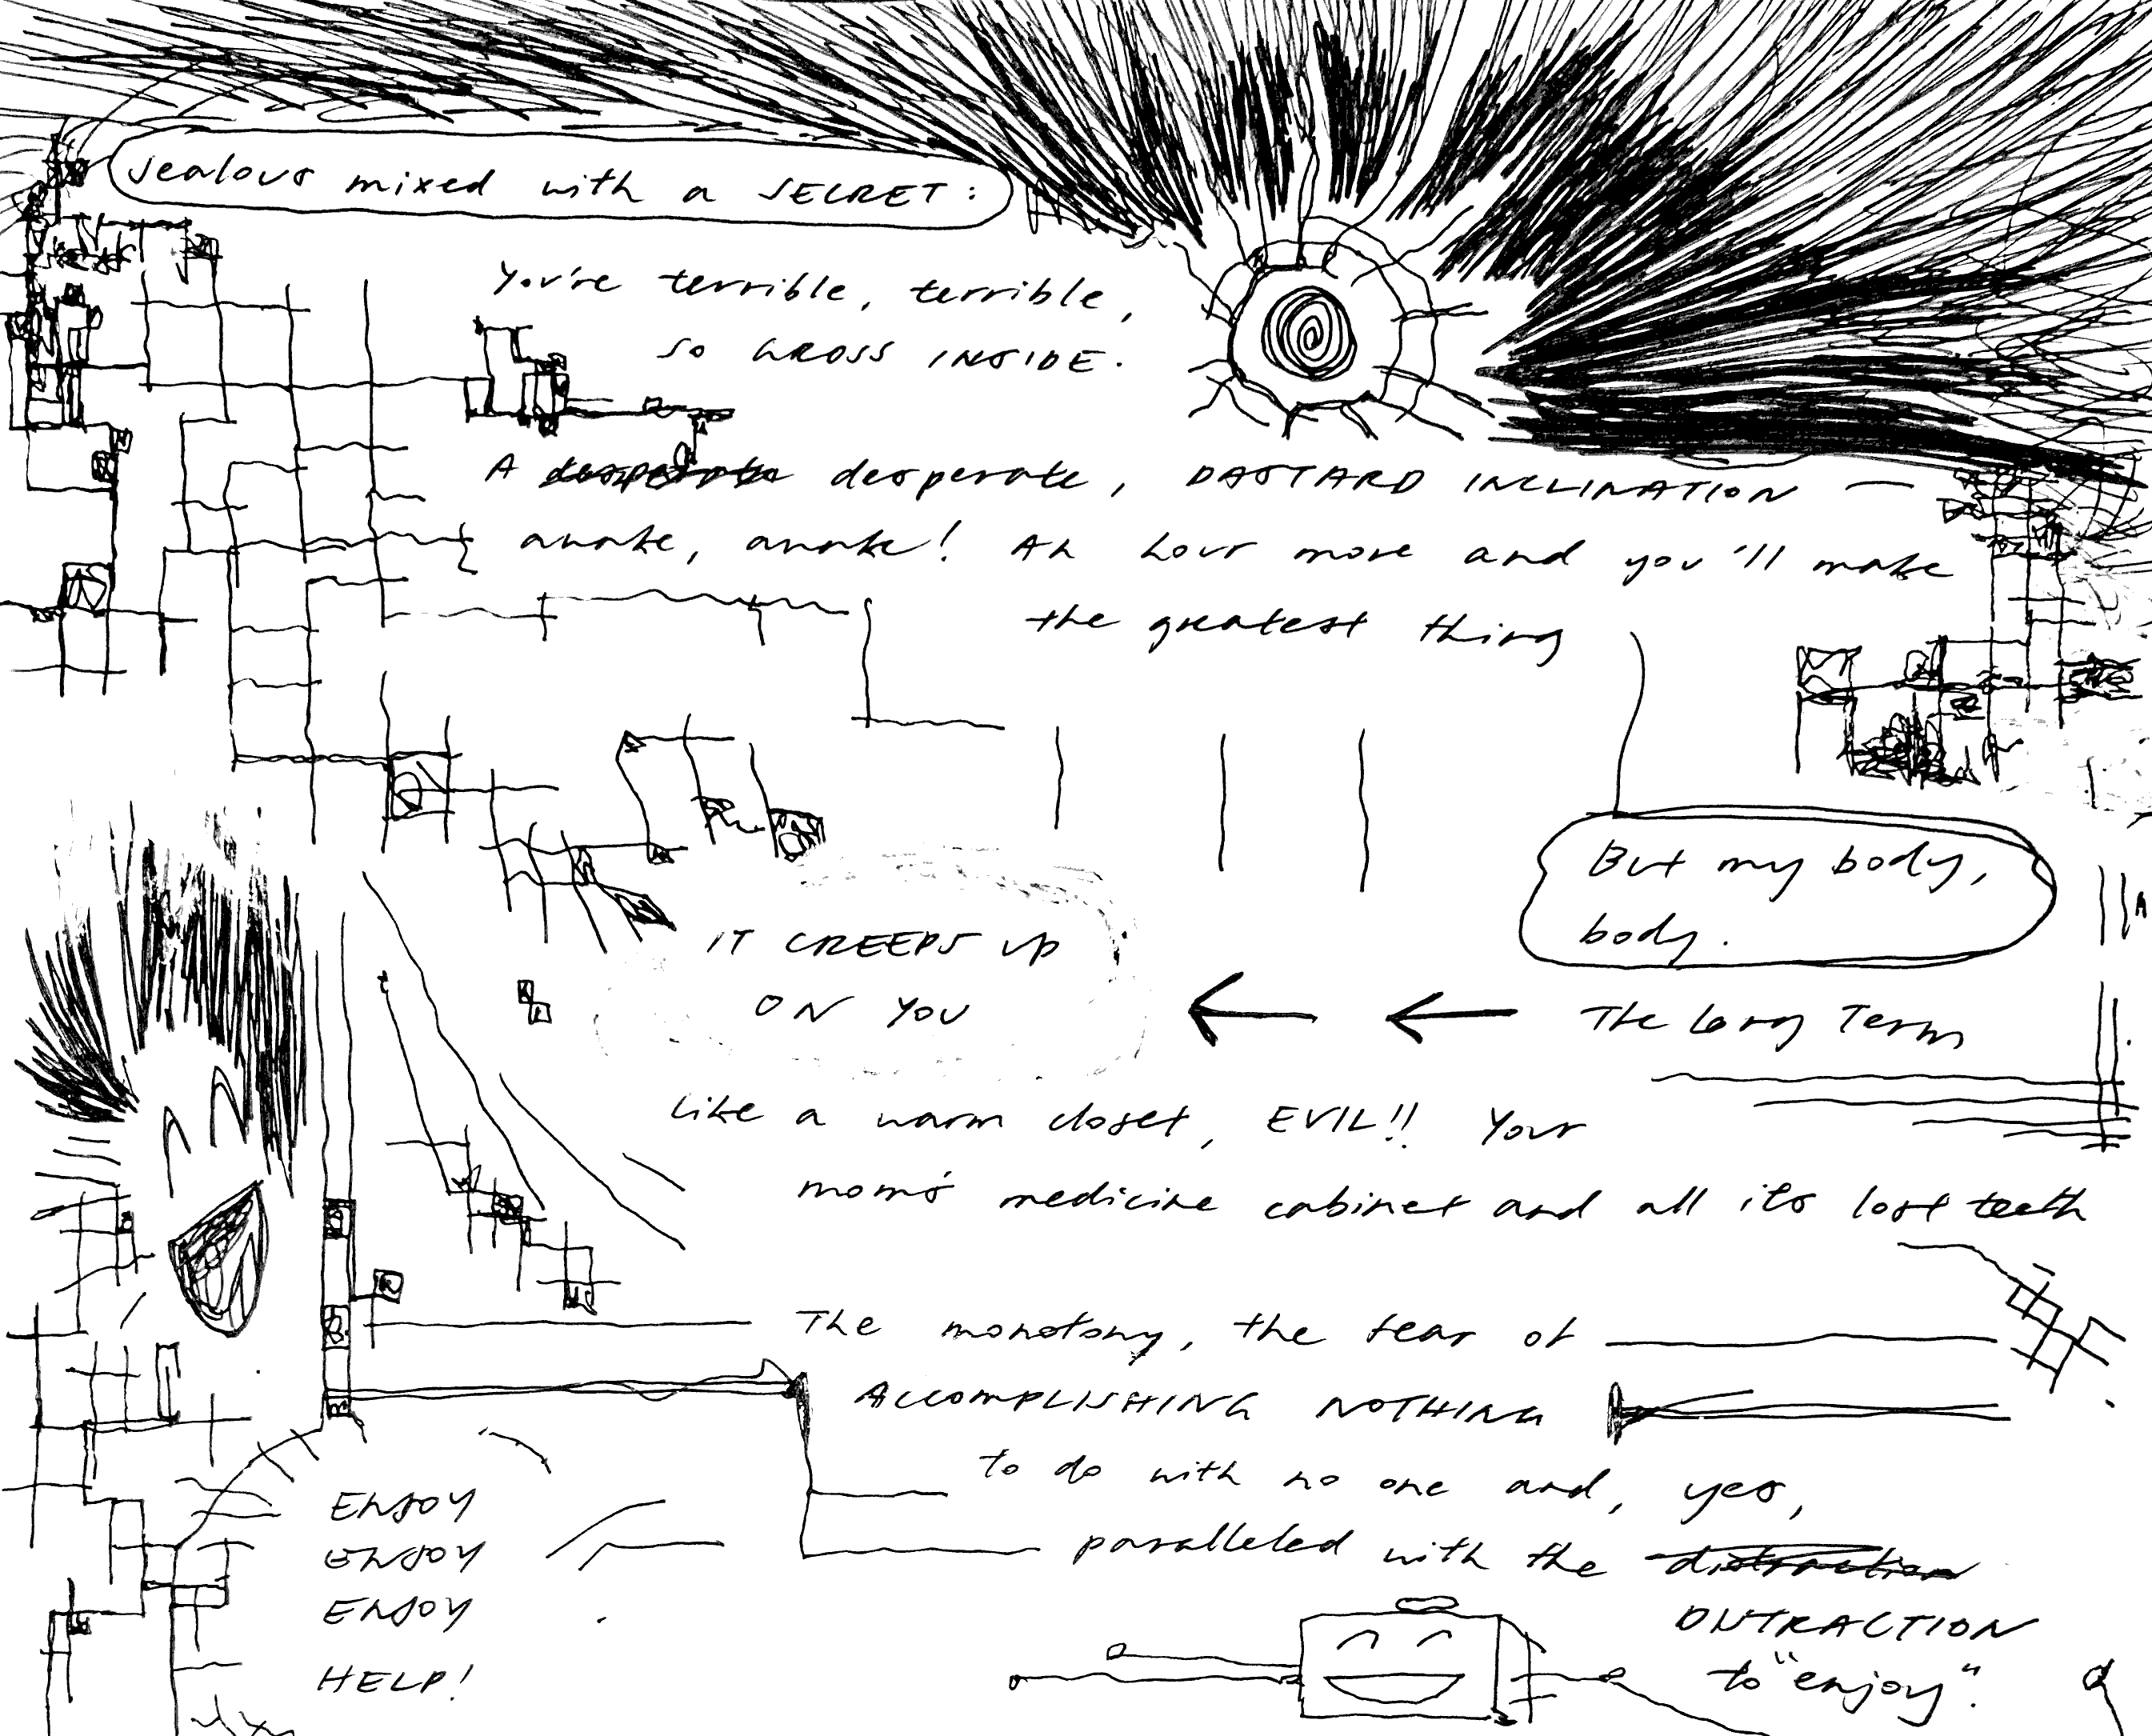 Jealous mixed with a SECRET:
You're terrible, terrible,
so GROSS INSIDE.
A desperate desperate, DASTARD INCLINATION —
awake, awake! An hour more and you'll make
the greatest thing
But my body,
body.
IT CREEPS up
ON YOU
The long Term
like a warm closet, EVIL!! Your
mom's medicine cabinet and all its lost teeth
The monotony, the fear of
ACCOMPLISHING NOTHING
to do with no one and, yes,
paralleled with the distraction
DISTRACTION
to "enjoy".
ENJOY
ENJOY
ENJOY
HELP!